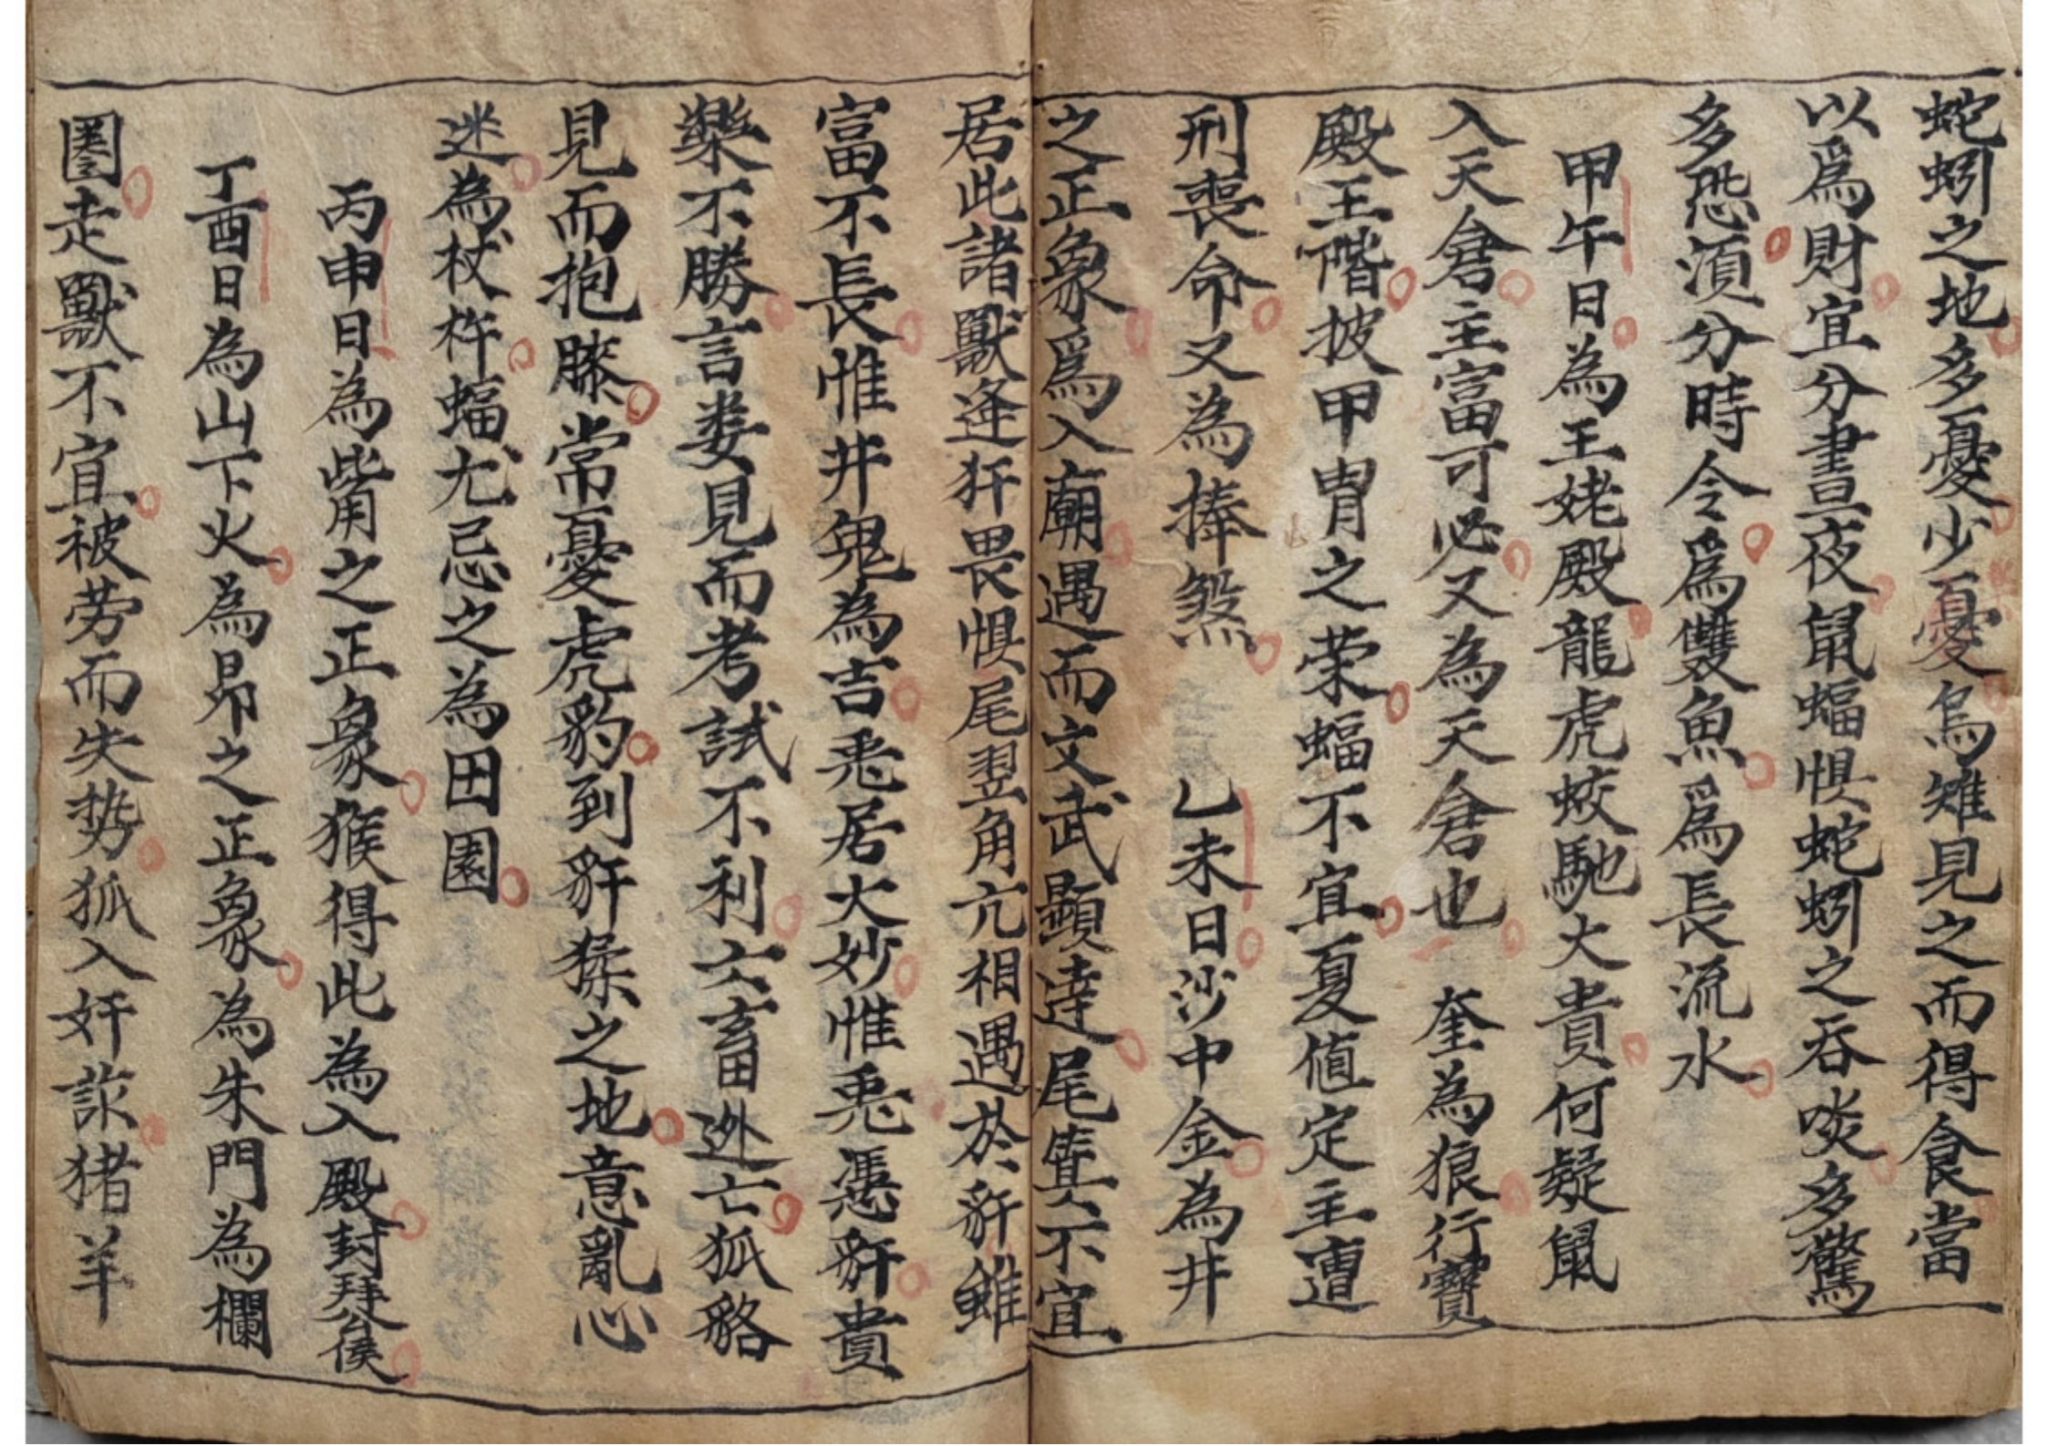 蛇蚓之地多憂少憂烏雉見之而得食當
以爲財宜分晝夜鼠蝠惧蛇蚓之吞啖多驚
多恐湏分時令爲雙魚爲長流水
甲午日為王姥殿龍虎蛟馳大貴何疑鼠
入天倉主富可必又為天倉也 奎為狼行寶
殿王階披甲胄之荣蝠不宜夏値定主遭
刑喪命又為捧煞 乙未日沙中金為井
之正象爲入廟遇而文武顯達尾箕不宜
居此諸獸逢犴畏惧尾翌角亢相遇於豻雖
富不長惟井鬼為吉兎居大妙惟兎慿豻貴
樂不勝言婁見而考試不利六畜迯亡狐貉
見而抱膝常憂虎豹到豻猱之地意亂心
迷為杖杵蝠尤忌之為田園
丙申日為觜之正象猴得此為入殿封拜公侯
丁酉日為山下火為昴之正象為朱門為欄
圈走獸不宜被劳而失势狐入奸訩猪羊